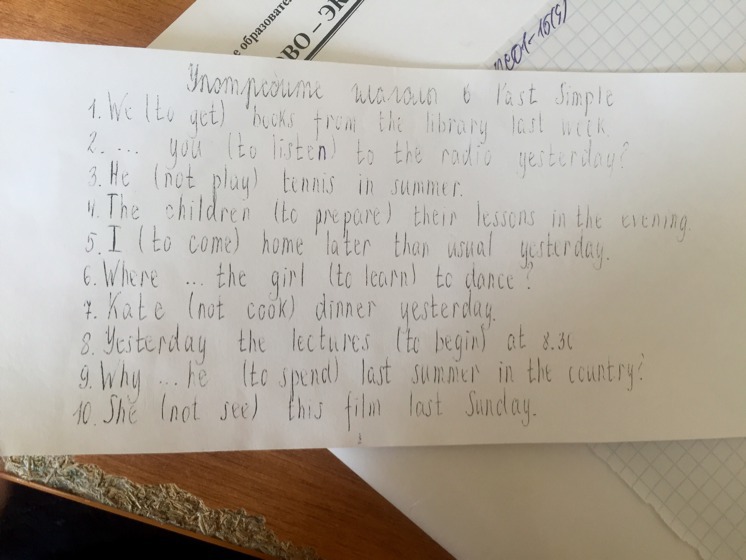 е образовате
ВО – ЭК
Употребите глагол в Past Simple
1. We (to get) books from the library last week.
2. ... you (to listen) to the radio yesterday?
3. He (not play) tennis in summer.
4. The children (to prepare) their lessons in the evening.
5. I (to come) home later than usual yesterday.
6. Where ... the girl (to learn) to dance?
7. Kate (not cook) dinner yesterday.
8. Yesterday the lectures (to begin) at 8.30
9. Why ... he (to spend) last summer in the country?
10. She (not see) this film last Sunday.